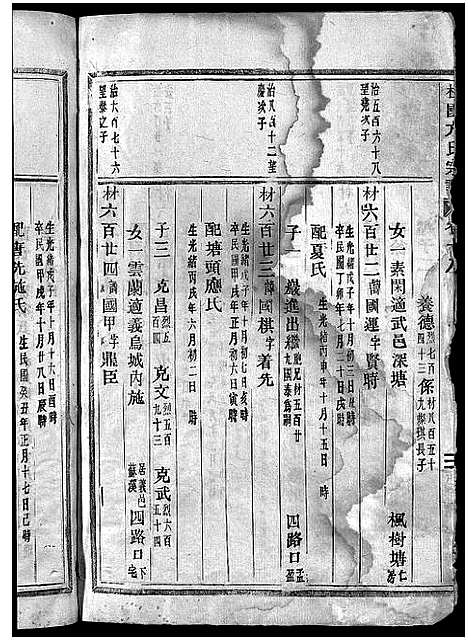 養德 烈七百四十三 係 材八百五十九 長子
女一 素閑適武邑深塘 楓樹塘
治五百六十八
材六百廿二 諱國運 字賢時
生光緒戊子年十月初三日 時
卒民國丁卯年七月二十日戌時
配夏氏 生光緒丙申年十月十五日 時
子一 進出繼 胞兄材五百廿九國泰為嗣 四路口
次子
材六百廿三 諱國棋 字着先
生光緒戊子年十月初七日亥時
卒民國甲戌年正月初六日寅時
配塘頭應氏
生光緒丙戌年六月初二日 時
子三 克昌 烈五百四 克文 烈五百九十三 克武 烈六百五十四
女一 雲蘭適義烏城內施 居義邑蘇溪 四路口 下宅
治六百七十六
之子
材六百廿四 諱國甲 字鼎臣
生光緒戊子年十月十六日酉時
卒民國甲戌年十月廿八日辰時
配唐先施氏 生民國癸丑年正月十七日己時